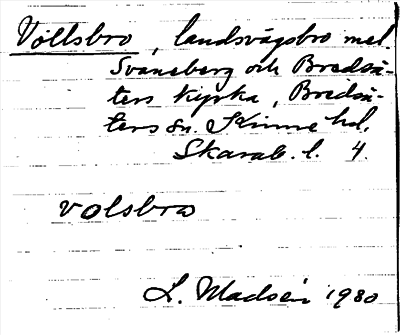 Vollsbro, landsvägsbro mel.
Svaneberg och Bredsä-
ters kyrka, Bredsä-
ters sn. Kinne hd.
Skarab. l. 4.
volsbro
L. Madsén 1930